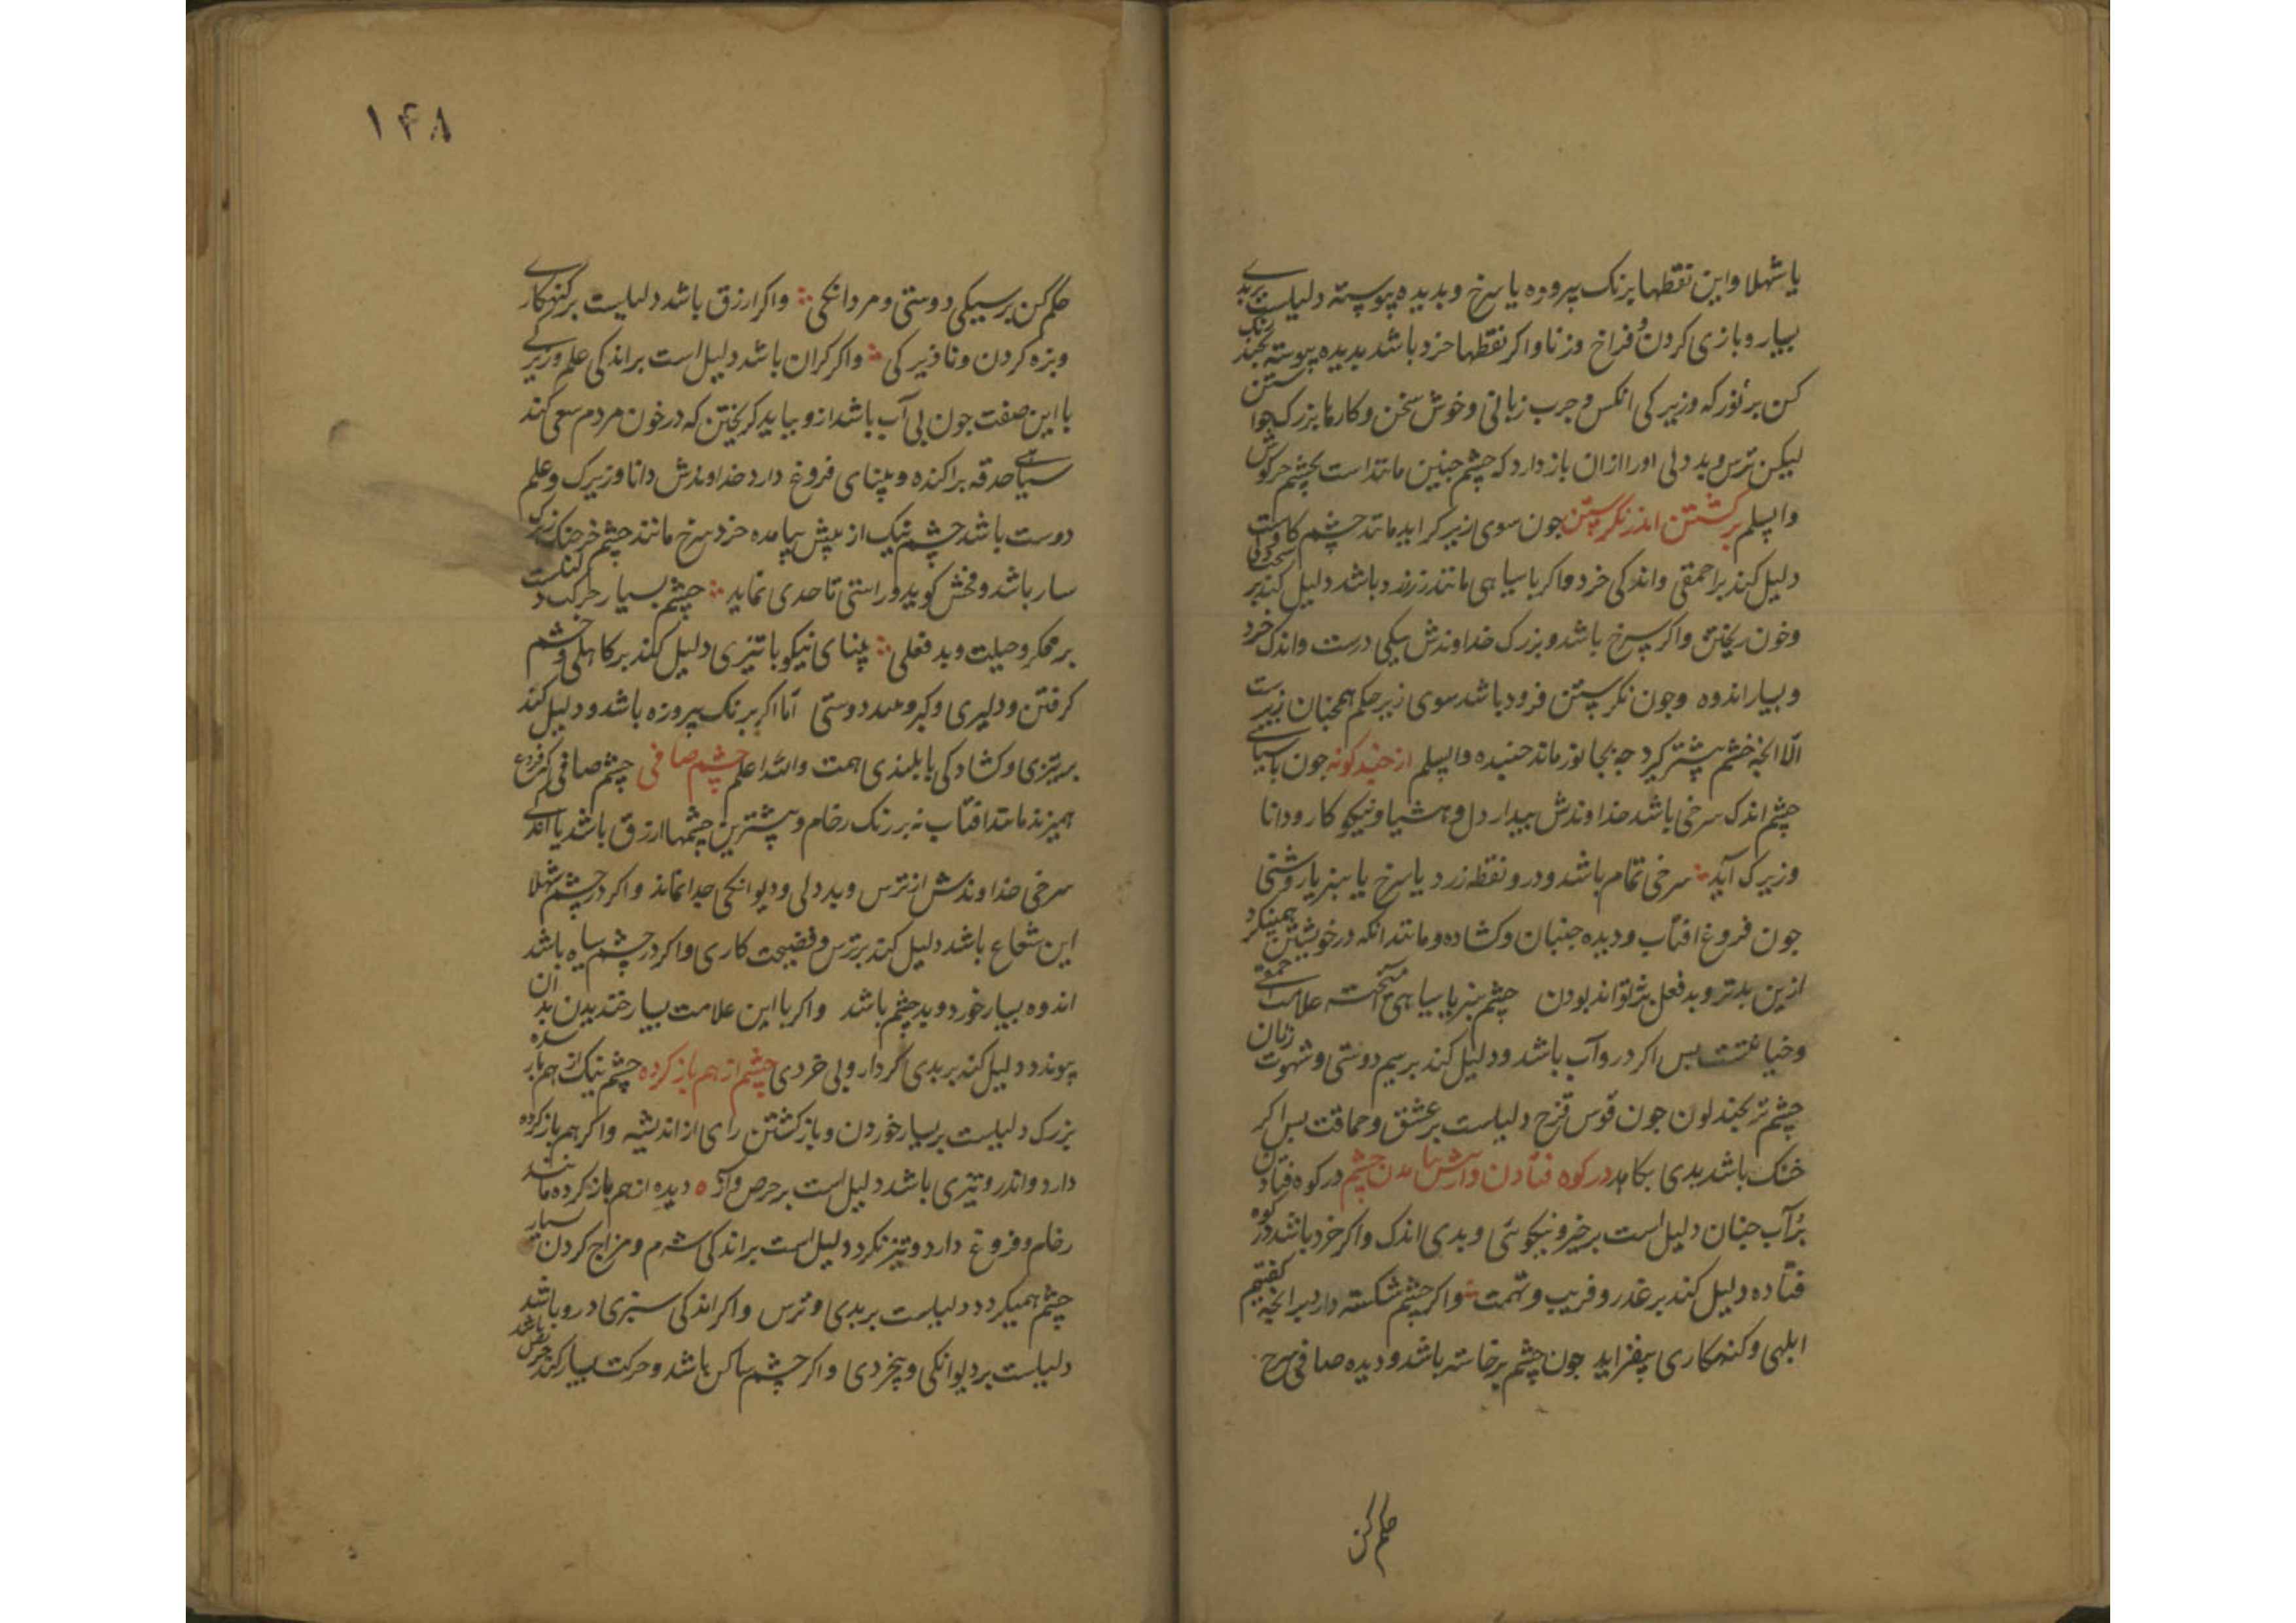 یا شهلا و این نقطها برنک پیروزه یا سرخ و بدیده پیوسته دلیلست بر بدی
بسیار و بازی کردن و فراخ وزنا و اکر نقطها خرد باشد بدیده پیوسته بجند رنک
کن بر نور که وزیرکی انکس و جرب زبانی و خوش سخن و کارها بزرک جواستن
لیکن ترس و بد دلی اورا ازان باز دارد که چشم جنین مانند است بچشم خرکوش
واپسلم برکشتن اندر نکرپستن جون سوی زیر کراید مانند چشم کاوست
دلیل کند بر احمقی و اندکی خرد و اکر با سیاهی مانند زرزرد باشد دلیل کند بر سخت دلی
وخون ریختن و اکر سرخ باشد و بزرک خداوندش بیکی درست و اندک خرد
و بسیار اندوه وجون نکرپستن فرود باشد سوی زیر حکم همجنان زیرست
الا انجه خشم پیشتر کیرد جه بجانور ماند خنیده واپسلم از خنید کونه جون با سیاهی
چشم اندک سرخی باشد خداوندش بیدار دل و هشیار و نیکو کار و دانا
و زیرک آید سرخی تمام باشد و درو نقطه زرد یا سرخ یا سبز یا روشنی
جون فروغ افتاب و دیده جنبان و کشاده و مانند انکه در خویشتن همینکرد
ازین بدتر و بد فعل تر نتواند بودن چشم سبز با سیاهی آمیخته علامت حمقی
و خیانتست بس اکر درو آب باشد و دلیل کند بر سیم دوستی و شهوت زنان
چشم تر بجند لون جون قوس قزح دلیلست بر عشق و حماقت بس اکر
خنک باشد بدی بکاهد در کوه فتادن و از پیش بیامدن چشم در کوه فتادن
پُر آب جنبان دلیل است بر خیر و نیکوئی و بدی اندک و اکر خرد باشد در کوه
فتاده دلیل کند بر غدر و فریب و تهمت و اکر چشم شکسته دارد بر انجه کفتیم
ابلهی و کنه کاری بیفزاید جون چشم برخاسته باشد و دیده صافی سرخ
حکم کن
۱۴۸
حکم کن بر سیکی دوستی و مردانکی و اکر ازرق باشد دلیلست بر کنهکاری
و بزه کردن و نا زیرکی و اکر کران باشد دلیل است بر اندکی علم و زیرکی
با این صفت جون بی آب باشد ازو بباید کریختن که در خون مردم سعی کند
سیاهی حدقه براکنده و بینای فروغ دارد خداوندش دانا و زیرک و علم
دوست باشد چشم نیک از پیش بیامده خرد سرخ مانند چشم خرجنک زیرک
سار باشد و فحش کوید و راستی تا حدی نماید چشم بسیار حرکت دلیلست
بر مکر و حیلت و بد فعلی بینای نیکو با تیزی دلیل کند بر کاهلی و خشم
کرفتن و دلیری و کبر و دوستی اما اکر برنک پیروزه باشد و دلیل کند
بر تیزی و کشادکی با بلندی همت والله اعلم چشم صافی چشم صافی کر فروغ
همیزند مانند افتاب نه بر رنک رخام و بیشترین چشمها ازرق باشد یا اندکی
سرخی خداوندش از ترس و بد دلی و دیوانکی جدا نماند و اکر در چشم شهلا
این شعاع باشد دلیل کند بر ترس و فضیحت کاری و اکر در چشم سیاه باشد
اندوه بسیار خورد و بد چشم باشد و اکر با این علامت بسیار خندیدن بدان
پیوندد دلیل کند بر بدی کردار و بی خردی چشم از هم باز کرده چشم نیک از هم باز
بزرک دلیلست بر بسیار خوردن و باز کشتن رای از اندیشه و اکر هم باز کرده
دارد و اندرو تیزی باشد دلیل است بر حرص و آز دیده از هم باز کرده مانند
رخام و فروغ دارد و تیز نکرد دلیل است بر اندکی شرم و مزاج کردن بسیار
چشم همیکردد دلیلست بر بدی و ترس و اکر اندکی سبزی درو باشد
دلیلست بر دیوانکی و بیخردی و اکر چشم ساکن باشد و حرکت بسیار کند